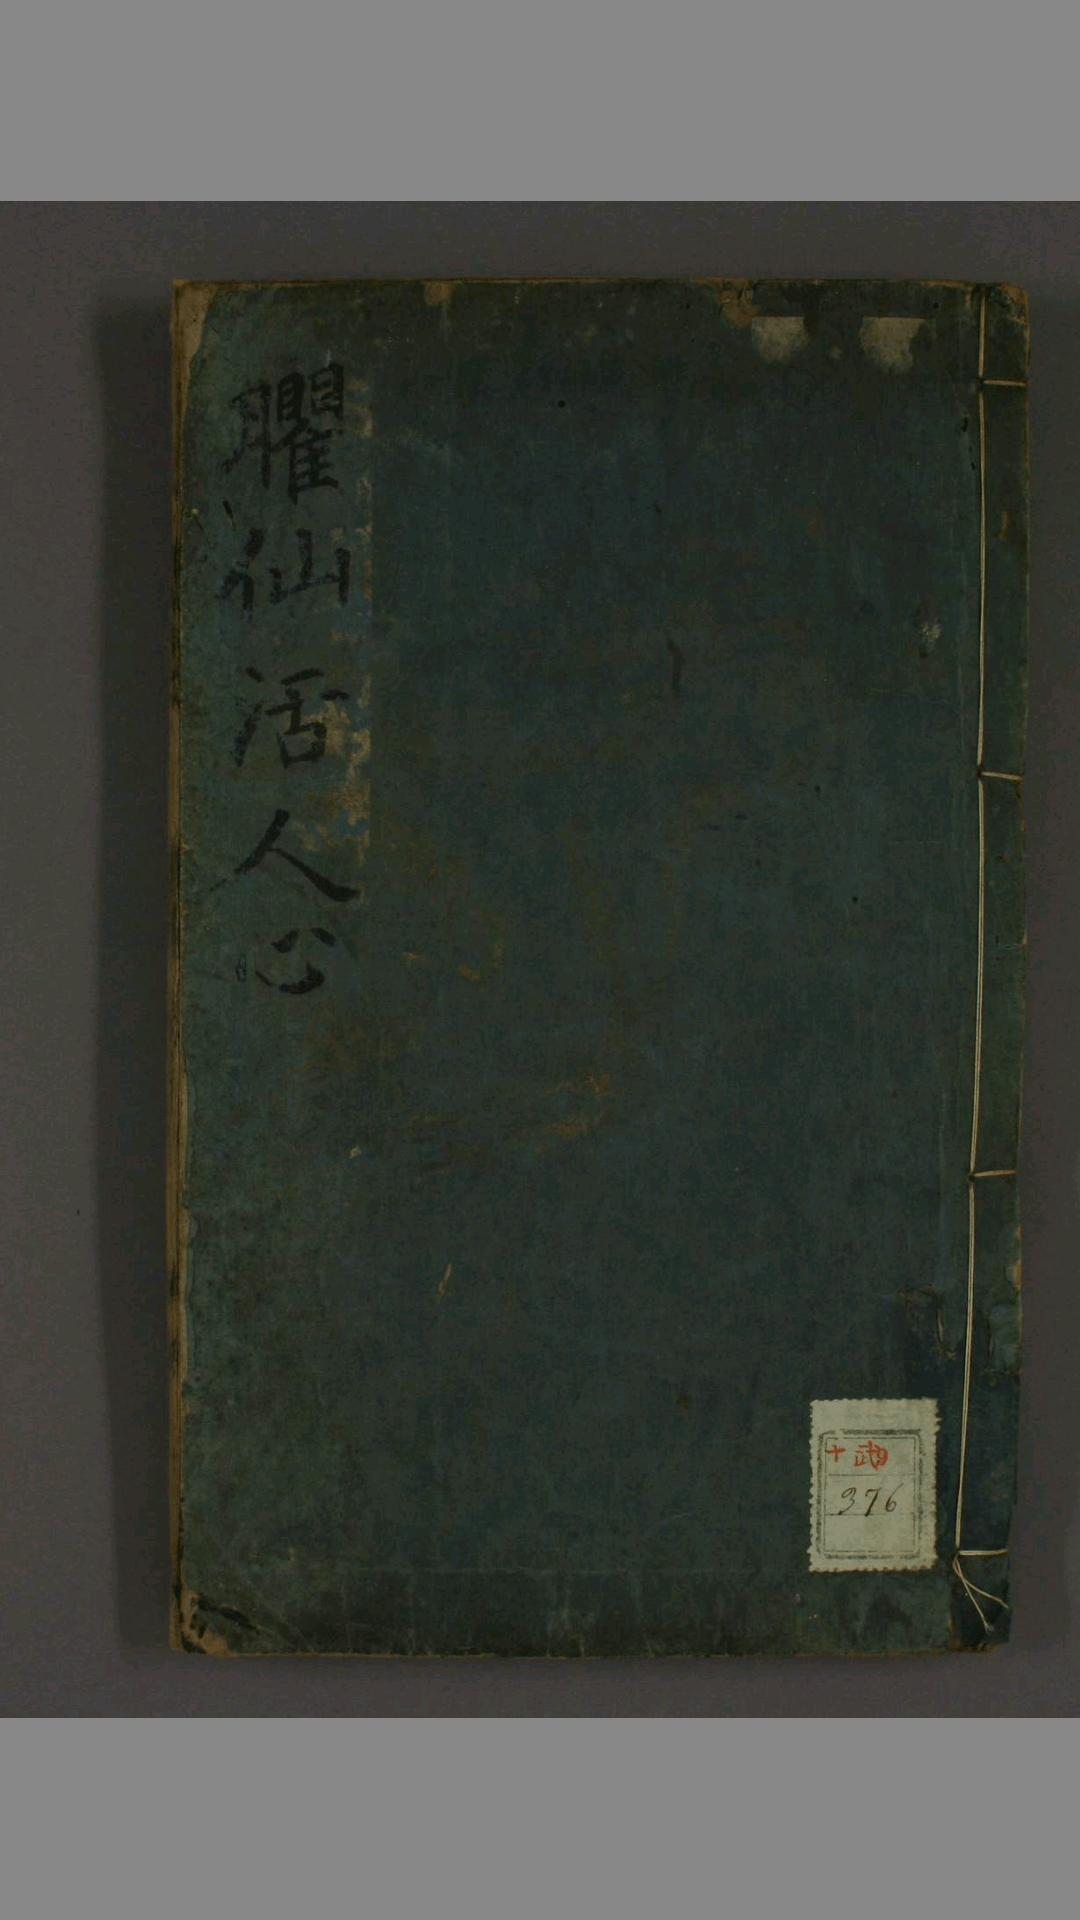 臞仙活人心
十武
376